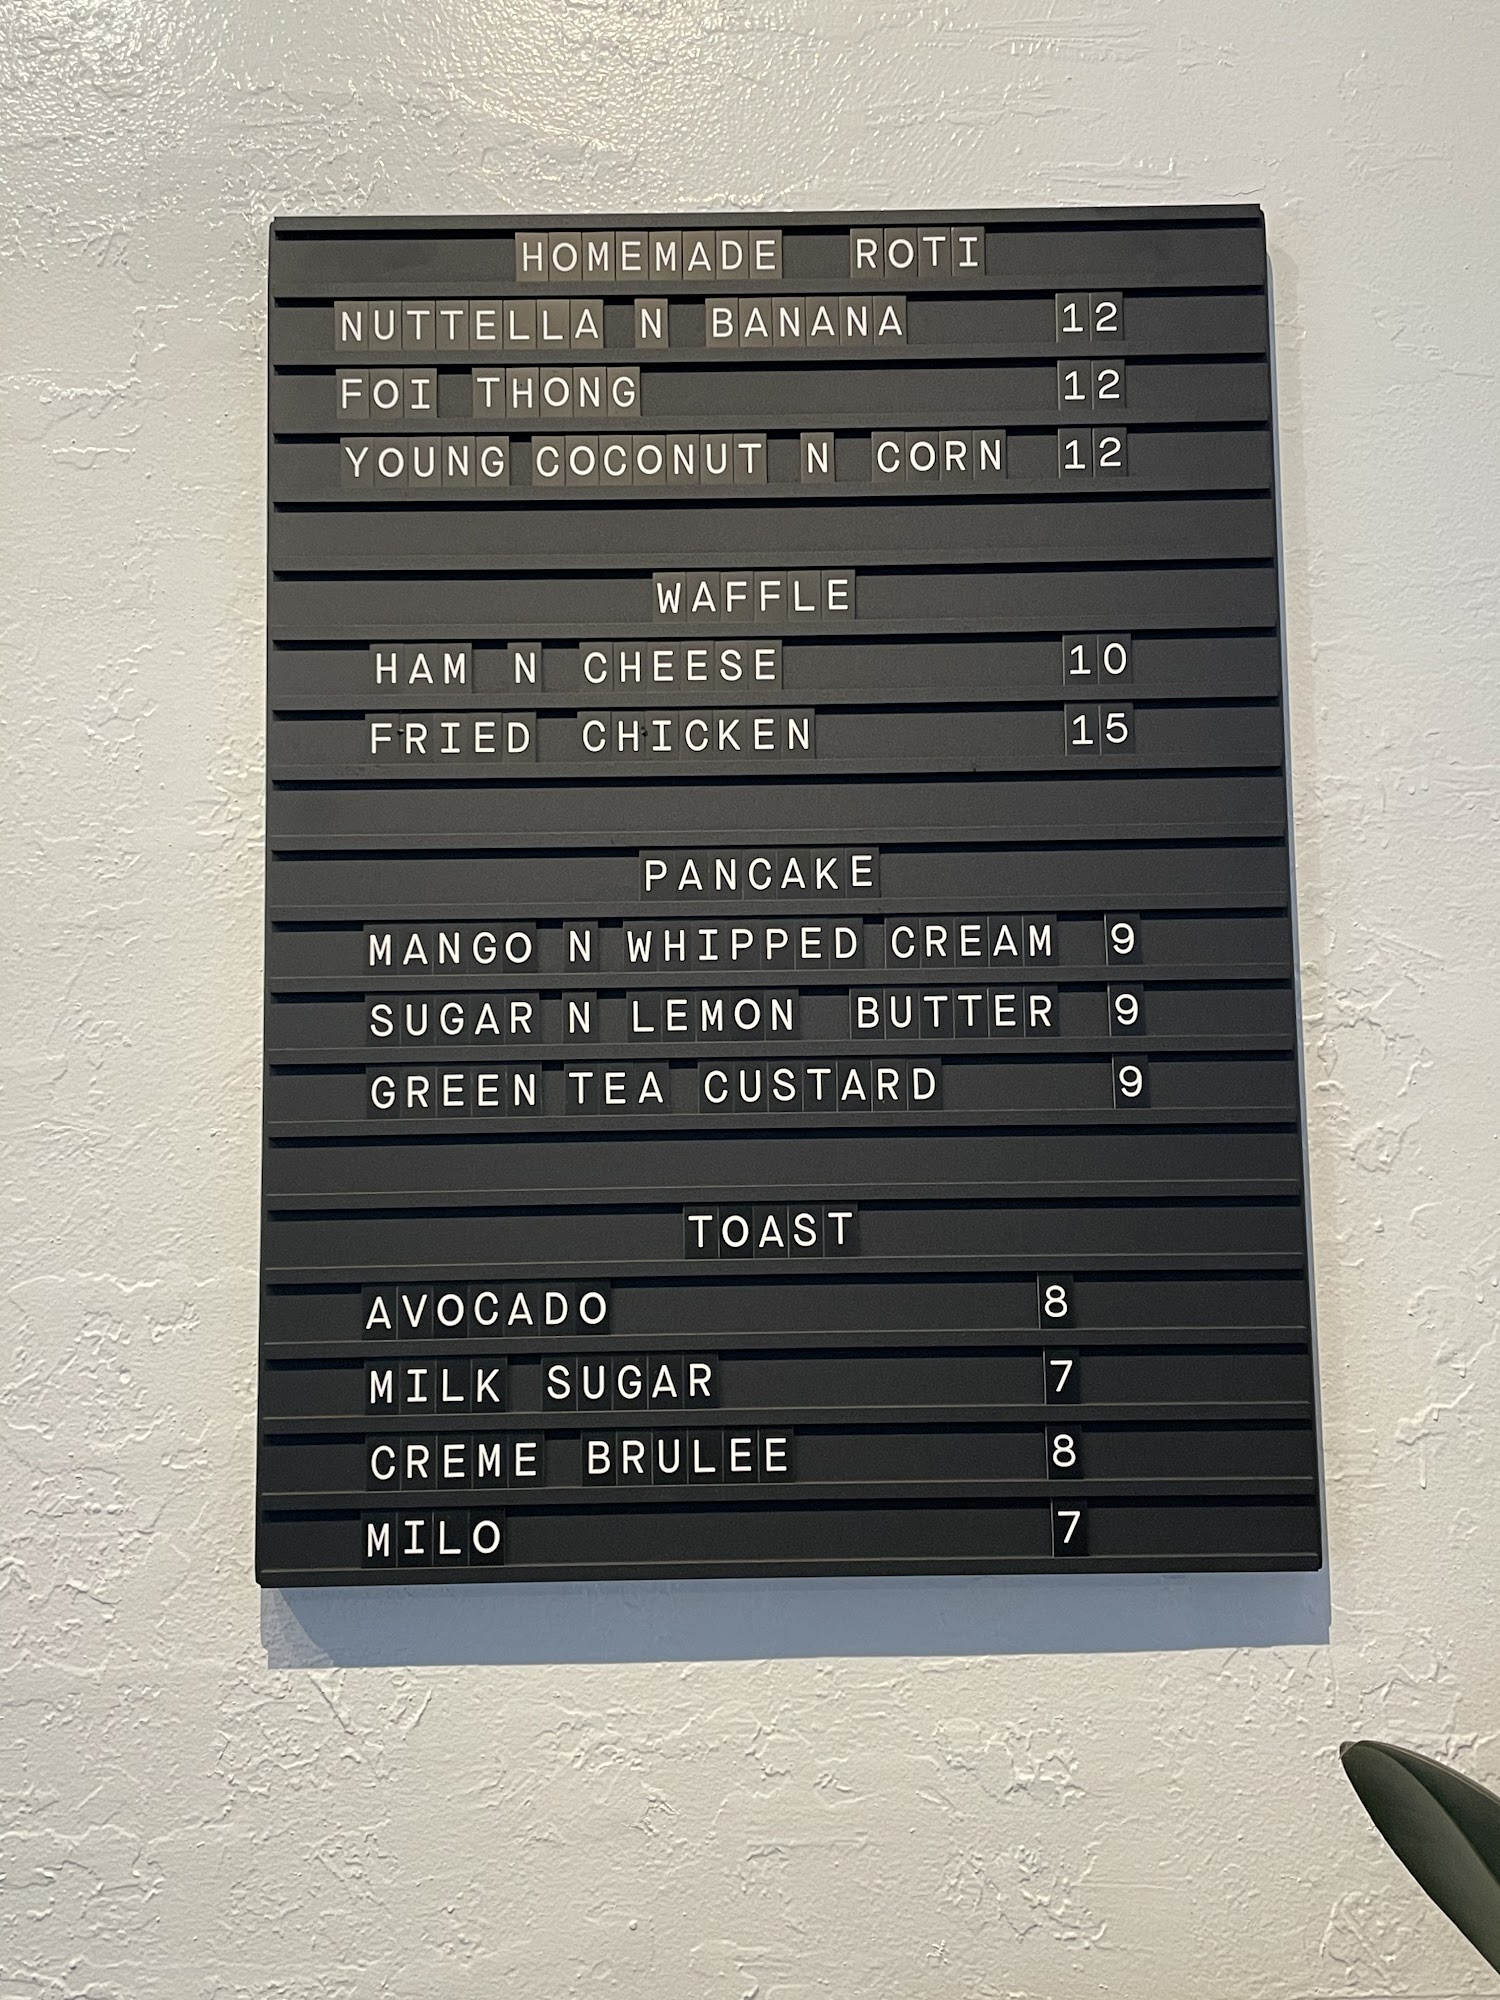 HOMEMADE ROTI
NUTTELLA N BANANA 12
FOI THONG 12
YOUNG COCONUT N CORN 12
WAFFLE
HAM N CHEESE 10
FRIED CHICKEN 15
PANCAKE
MANGO N WHIPPED CREAM 9
SUGAR N LEMON BUTTER 9
GREEN TEA CUSTARD 9
TOAST
AVOCADO 8
MILK SUGAR 7
CREME BRULEE 8
MILO 7